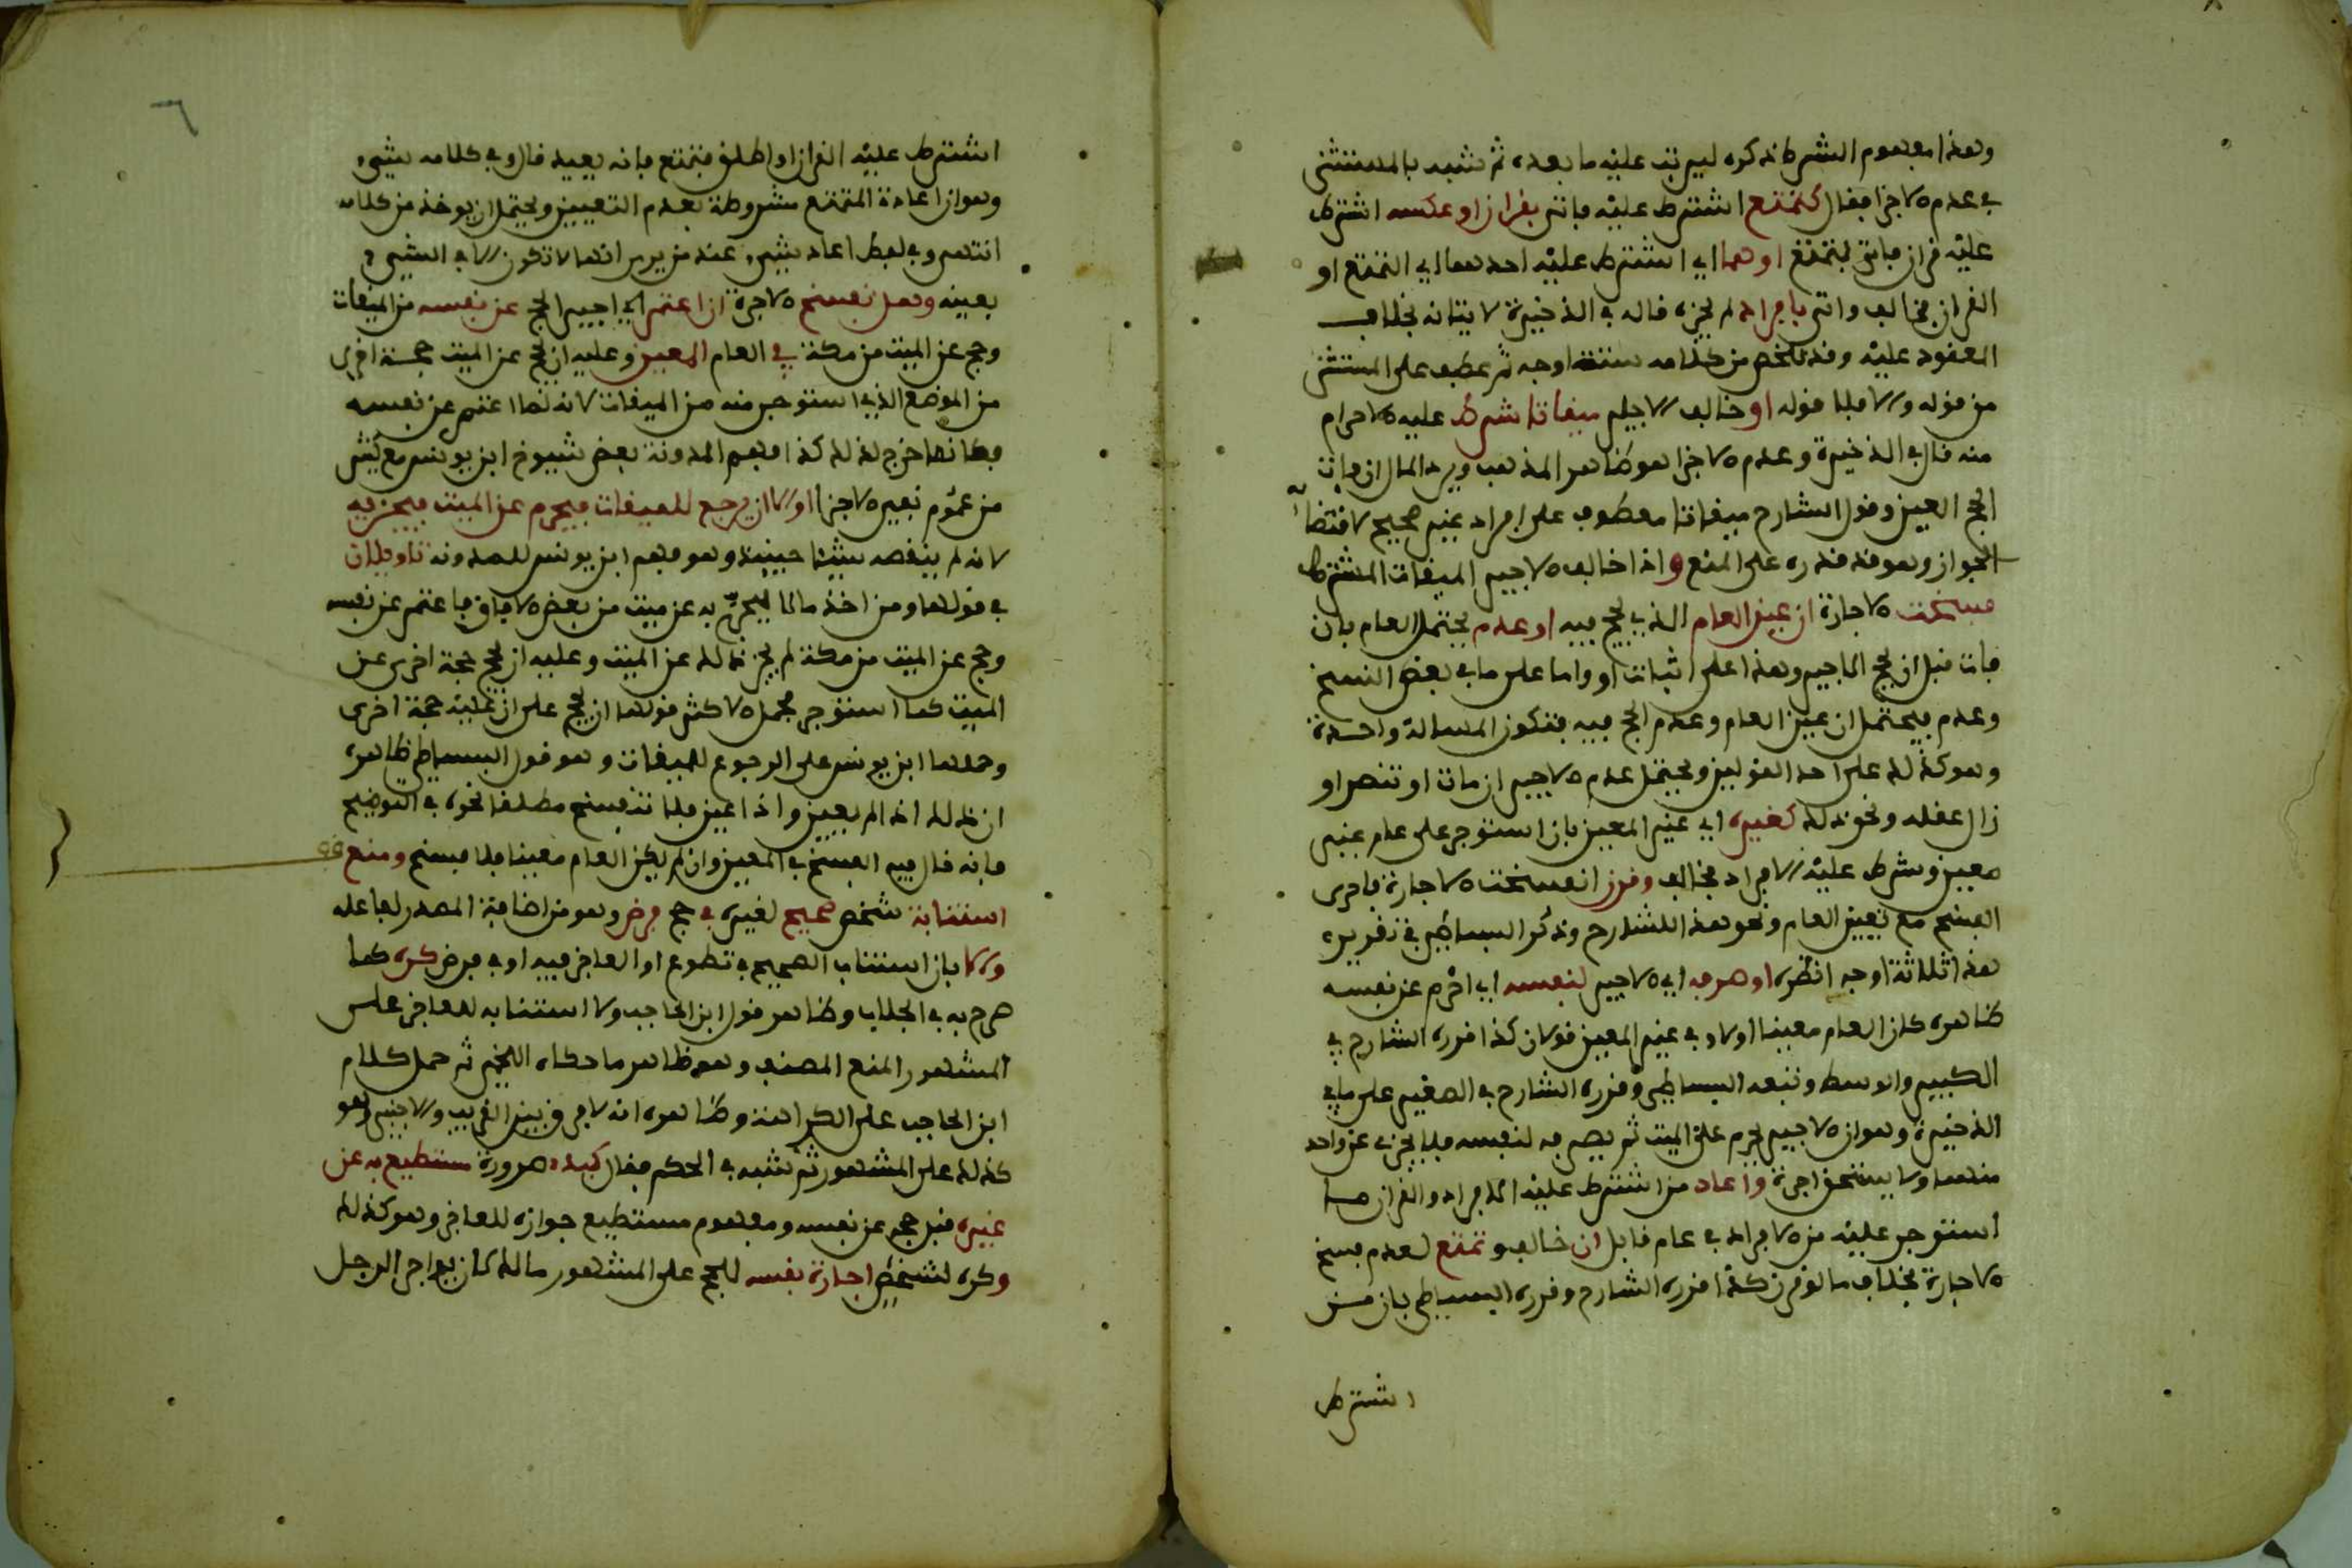 وهذا مفهوم الشرط ذكره ليرتب عليه ما بعده ثم شبه بالمستثنى
في عدم الاجزا فقال كتمتع اشترط عليه فاتى بقران او عكسه اشترط
عليه قران فاتى بتمتع او هما اي اشترط عليه احدهما اي التمتع او
القران فخالف واتى بافراد لم يجزه قاله في الذخيرة لاتيانه بخلاف
المعقود عليه وقد تلخص من كلامه ستة اوجه ثم عطف على المستثنى
من قوله والا فلا قوله او خالف الاجير ميقاتا شرط عليه الاحرام
منه قال في الذخيرة وعدم الاجزا هو ظاهر المذهب ويرد المال ان فات
الحج المعين وقول الشارح ميقاتا معطوف على افراد غير صحيح لاقتضا
الجواز وهو قد قدره على المنع واذا خالف الاجير الميقات المشترط
فسخت الاجارة ان عين العام الذي يحج فيه او عدم يحتمل العام بان
فات قبل ان يحج الاجير وهذا على اثبات او واما على ما في بعض النسخ
وعدم فيحتمل ان عين العام وعدم الحج فيه فتكون المسالة واحدة
وهو كذلك على احد القولين ويحتمل عدم الاجير ان مات او تنصر او
زال عقله ونحو ذلك كغيره اي غير المعين بان استوجر على عام غير
معين وشرط عليه الافراد فخالف وقرن انفسخت الاجارة فاحرى
الفسخ مع تعيين العام ونحو هذا للشارح وذكر البساطي في تقريره
هذا ثلاثة اوجه انظره او صرفه اي الاجير لنفسه اي احرم عن نفسه
ظاهره كان العام معينا او لا وفي غير المعين قولان كذا قرره الشارح في
الكبير والوسط وتبعه البساطي وقرره الشارح في الصغير على ما في
الذخيرة وهو ان الاجير يحرم على الميت ثم يصرفه لنفسه فلا يجزي عن واحد
منهما ولا يستحق اجرة واعاد من اشترط عليه الافراد والقران مما
استوجر عليه من الافراد في عام قابل ان خالف وتمتع لعدم فسخ
الاجارة بخلاف ما لو قرن كذا قرره الشارح وقرره البساطي بان من
اشترط
٦
اشترط عليه القران او اطلق فتمتع فانه يعيد قال وفي كلامه شيء
وهو ان اعادة المتمتع مشروطة بعدم التعيين ويحتمل ان يوخذ من كلامه
انتهى وفي لفظ اعاد شيء عند من يرى انها لا تكون الا في الشيء
بعينه وهل تفسخ الاجرة ان اعتمر اي اجير الحج عن نفسه من الميقات
وحج عن الميت من مكة في العام المعين وعليه ان يحج عن الميت حجة اخرى
من الموضع الذي استوجر منه من الميقات لانه لما اعتمر عن نفسه
فكانما خرج لذلك كذا فهم المدونة بعض شيوخ ابن يونس مع كثير
من عموم نفي الاجزا او الا ان يرجع للميقات فيحرم عن الميت فيجزيه
لانه لم ينقصه شيئا حينيذ وهو فهم ابن يونس للمدونة تاويلان
في قولها ومن اخذ مالا ليحج به عن ميت من بعض الافاق فاعتمر عن نفسه
وحج عن الميت من مكة لم يجز ذلك عن الميت وعليه ان يحج حجة اخرى عن
الميت كما استوجر فحمل الاكثر قولها ان يحج على ان عليه حجة اخرى
وحملها ابن يونس على الرجوع للميقات وهو قول البساطي ظاهره
ان ذلك اذا لم يعين واذا عين فلا تنفسخ مطلقا نحوه في التوضيح
فانه قال فيه الفسخ في المعين وان لم يكن العام معينا فلا فسخ ومنع
استنابة شخص صحيح لغيره في حج فرض وهو من اضافة المصدر لفاعله
والا بان استناب الصحيح في تطوع او العاجز فيه او في فرض كره كما
صرح به في الجلاب وظاهر قول ابن الحاجب ولا استنابة لعاجز على
المشهور المنع المصنف وهو ظاهر ما حكاه اللخمي ثم حمل كلام
ابن الحاجب على الكراهة وظاهره انه لا فرق بين القريب والاجنبي وهو
كذلك على المشهور ثم شبه في الحكم فقال كبدء صرورة مستطيع به عن
غيره قبل حجه عن نفسه ومفهوم مستطيع جوازه للعاجز وهو كذلك
وكره لشخص اجارة نفسه للحج على المشهور مالك لان يواجر الرجل